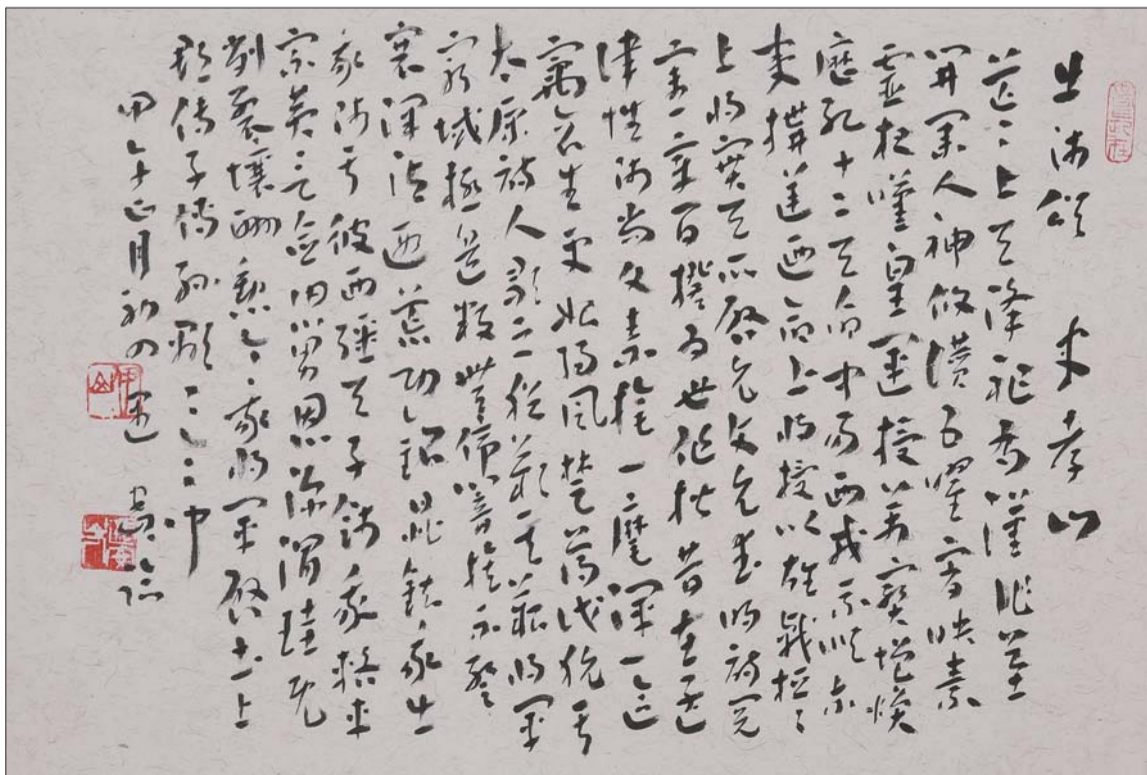 出師頌 史孝山
茫茫上天降祚有漢兆基
開業人神攸讚五曜宵映素
靈夜嘆皇運授萬寶增煥
歷紀十二天命中易西戎不順東
夷構逆乃命上將授以雄戟桓桓
上將實天所啟允文允武明詩閱
章百揆為世作楷昔在孟
津惟師尚父素旄一麾渾一區
寓蒼生更始朔風楚薄伐獫狁至
太原詩人歌之猶歎其艱將軍
窮域極邊鼓無停響旗不蹔
褰渾沾遐荒功銘鼎鉉我出
我師于彼西疆天子餞我輅車
言念伯舅恩深渭珪既
削裂壤酬勳今我將軍啟土上
郡傳子傳孫顯顯令問
甲午正月初四